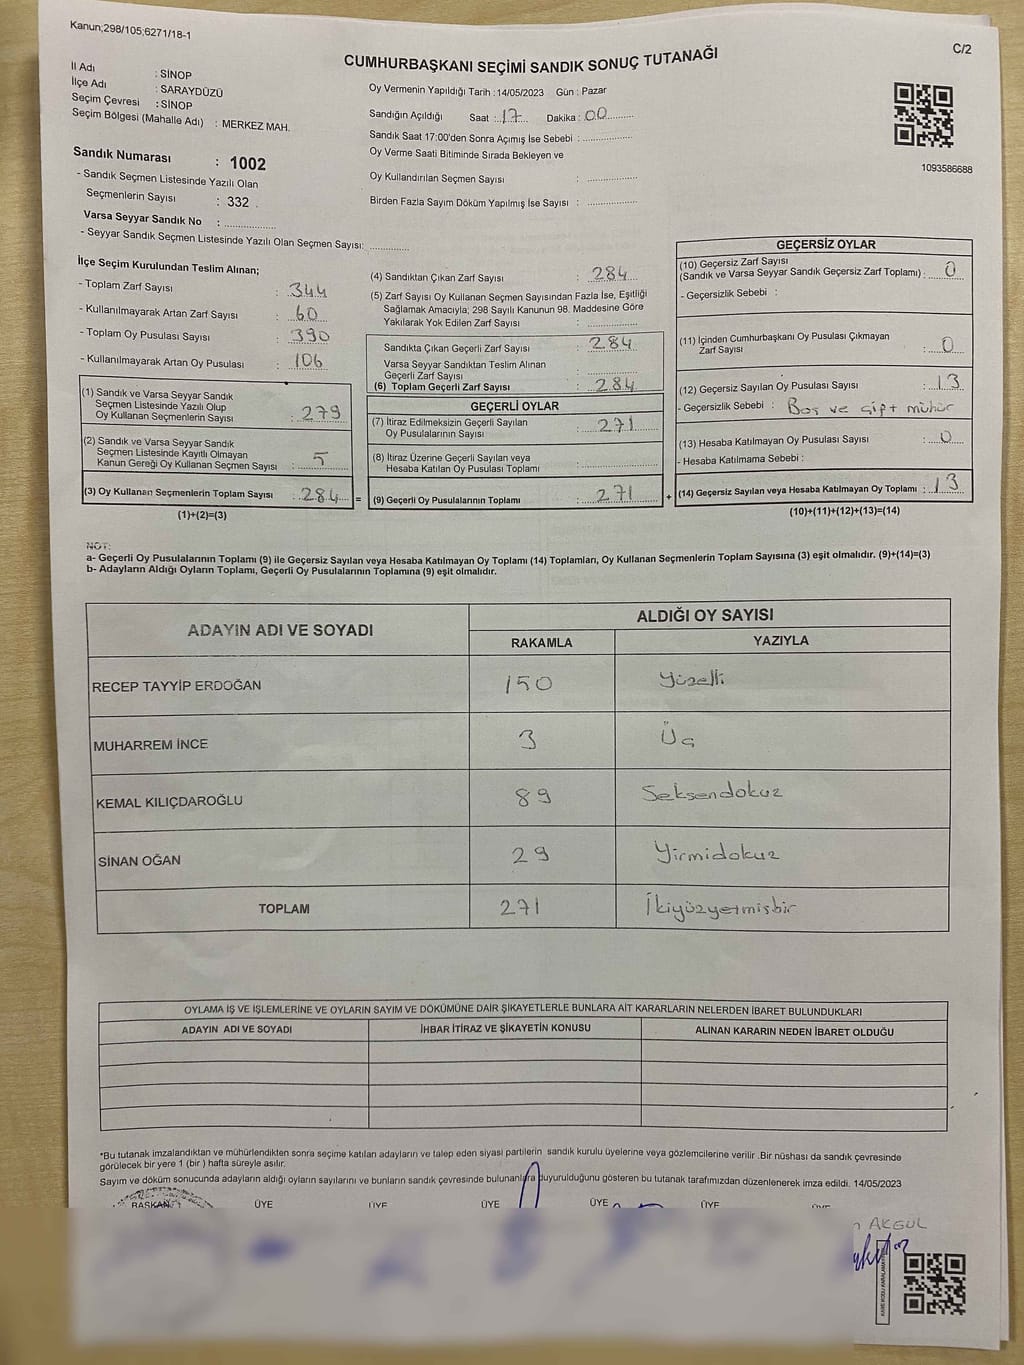 Kanun;298/105;6271/18-1
C/2
CUMHURBAŞKANI SEÇİMİ SANDIK SONUÇ TUTANAĞI
İl Adı : SİNOP
İlçe Adı : SARAYDÜZÜ
Seçim Çevresi : SİNOP
Seçim Bölgesi (Mahalle Adı) : MERKEZ MAH.
Sandık Numarası : 1002
- Sandık Seçmen Listesinde Yazılı Olan
Seçmenlerin Sayısı : 332
Varsa Seyyar Sandık No :
- Seyyar Sandık Seçmen Listesinde Yazılı Olan Seçmen Sayısı:
Oy Vermenin Yapıldığı Tarih : 14/05/2023 Gün : Pazar
Sandığın Açıldığı Saat : 17 Dakika : 00
Sandık Saat 17:00'den Sonra Açımış İse Sebebi :
Oy Verme Saati Bitiminde Sırada Bekleyen ve
Oy Kullandırılan Seçmen Sayısı :
Birden Fazla Sayım Döküm Yapılmış İse Sayısı :
1093586688
İlçe Seçim Kurulundan Teslim Alınan;
- Toplam Zarf Sayısı : 344
- Kullanılmayarak Artan Zarf Sayısı : 60
- Toplam Oy Pusulası Sayısı : 390
- Kullanılmayarak Artan Oy Pusulası : 106
(1) Sandık ve Varsa Seyyar Sandık
Seçmen Listesinde Yazılı Olup
Oy Kullanan Seçmenlerin Sayısı : 279
(2) Sandık ve Varsa Seyyar Sandık
Seçmen Listesinde Kayıtlı Olmayan
Kanun Gereği Oy Kullanan Seçmen Sayısı : 5
(3) Oy Kullanan Seçmenlerin Toplam Sayısı : 284 =
(1)+(2)=(3)
(4) Sandıktan Çıkan Zarf Sayısı : 284
(5) Zarf Sayısı Oy Kullanan Seçmen Sayısından Fazla İse, Eşitliği
Sağlamak Amacıyla; 298 Sayılı Kanunun 98. Maddesine Göre
Yakılarak Yok Edilen Zarf Sayısı :
Sandıkta Çıkan Geçerli Zarf Sayısı : 284
Varsa Seyyar Sandıktan Teslim Alınan
Geçerli Zarf Sayısı :
(6) Toplam Geçerli Zarf Sayısı : 284
GEÇERLİ OYLAR
(7) İtiraz Edilmeksizin Geçerli Sayılan
Oy Pusulalarının Sayısı : 271
(8) İtiraz Üzerine Geçerli Sayılan veya
Hesaba Katılan Oy Pusulası Toplamı :
(9) Geçerli Oy Pusulalarının Toplamı : 271 +
GEÇERSİZ OYLAR
(10) Geçersiz Zarf Sayısı
(Sandık ve Varsa Seyyar Sandık Geçersiz Zarf Toplamı) : 0
- Geçersizlik Sebebi :
(11) İçinden Cumhurbaşkanı Oy Pusulası Çıkmayan
Zarf Sayısı : 0
(12) Geçersiz Sayılan Oy Pusulası Sayısı : 13
- Geçersizlik Sebebi : Boş ve çift mühür
(13) Hesaba Katılmayan Oy Pusulası Sayısı : 0
- Hesaba Katılmama Sebebi :
(14) Geçersiz Sayılan veya Hesaba Katılmayan Oy Toplamı : 13
(10)+(11)+(12)+(13)=(14)
NOT:
a- Geçerli Oy Pusulalarının Toplamı (9) ile Geçersiz Sayılan veya Hesaba Katılmayan Oy Toplamı (14) Toplamları, Oy Kullanan Seçmenlerin Toplam Sayısına (3) eşit olmalıdır. (9)+(14)=(3)
b- Adayların Aldığı Oyların Toplamı, Geçerli Oy Pusulalarının Toplamına (9) eşit olmalıdır.
ADAYIN ADI VE SOYADI
ALDIĞI OY SAYISI
RAKAMLA YAZIYLA
RECEP TAYYİP ERDOĞAN 150 Yüzelli
MUHARREM İNCE 3 Üç
KEMAL KILIÇDAROĞLU 89 Seksendokuz
SİNAN OĞAN 29 Yirmidokuz
TOPLAM 271 İkiyüzyetmişbir
OYLAMA İŞ VE İŞLEMLERİNE VE OYLARIN SAYIM VE DÖKÜMÜNE DAİR ŞİKAYETLERLE BUNLARA AİT KARARLARIN NELERDEN İBARET BULUNDUKLARI
ADAYIN ADI VE SOYADI İHBAR İTİRAZ VE ŞİKAYETİN KONUSU ALINAN KARARIN NEDEN İBARET OLDUĞU
*Bu tutanak imzalandıktan ve mühürlendikten sonra seçime katılan adayların ve talep eden siyasi partilerin sandık kurulu üyelerine veya gözlemcilerine verilir .Bir nüshası da sandık çevresinde
görülecek bir yere 1 (bir ) hafta süreyle asılır.
Sayım ve döküm sonucunda adayların aldığı oyların sayılarını ve bunların sandık çevresinde bulunanlara duyurulduğunu gösteren bu tutanak tarafımızdan düzenlenerek imza edildi. 14/05/2023
BAŞKAN ÜYE ÜYE ÜYE ÜYE ÜYE ÜYE
AKGÜL